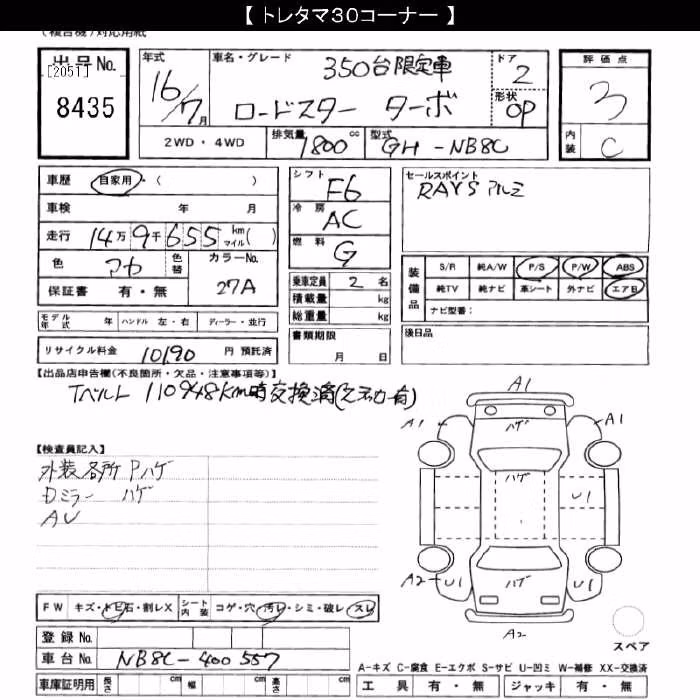 【 トレタマ30コーナー 】
(複合機)対応用紙
出品No.
[2051]
8435
年式
16/7月
車名・グレード
350台限定車
ロードスター ターボ
ドア
2
形状
OP
評価点
3
内装
C
2WD・4WD
排気量
1800 cc
型式
GH-NB8C
車歴
自家用・( )
車検 年 月
走行 14万9千655 km マイル( )
色
アカ
色替
カラーNo.
27A
保証書 有・無
シフト
F6
冷房
AC
燃料
G
乗車定員 2 名
積載量 kg
総重量 kg
セールスポイント
RAYSアルミ
装備品
S/R 純A/W P/S P/W ABS
純TV 純ナビ 革シート 外ナビ エアB
ナビ型番:
モデル年式 年 ハンドル 左・右 ディーラー・並行
書類期限
月 日
後日品
リサイクル料金 10190 円 預託済
【出品店申告欄(不良箇所・欠品・注意事項等)】
Tベルト 110948km時交換済(ステッカー有)
【検査員記入】
外装各所 Pハゲ
Dミラー ハゲ
AU
A1
A1
A1
ハゲ
ハゲ
U1
ハゲ
A2
U1
U1
A2
スペア
FW キズ・トビ石・割レX シート内装 コゲ・穴・汚レ・シミ・破レ・スレ
登録No.
車台No. NB8C-400557
車庫証明用 長さ cm 幅 cm 高さ cm
A-キズ C-腐食 E-エクボ S-サビ U-凹ミ W-補修 XX-交換済
工具 有・無 ジャッキ 有・無